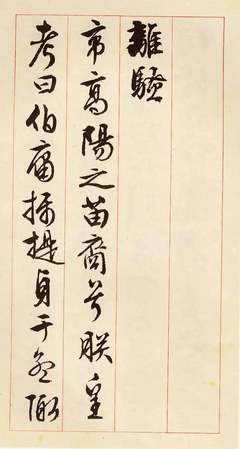 離騷
帝高陽之苗裔兮朕皇
考曰伯庸攝提貞于孟陬